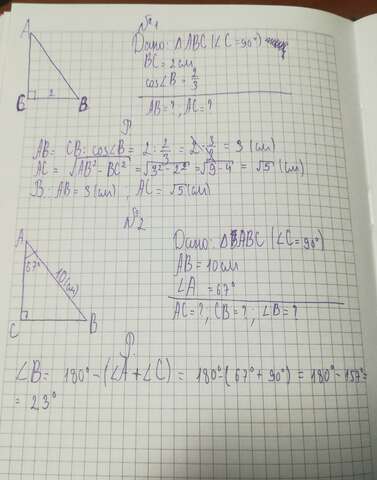 №1
A
C
2
B
Дано: △ABC (∠C=90°)
BC = 2см
cos∠B = 2/3
AB = ?, AC = ?
Р.
AB = CB : cos∠B = 2 : 2/3 = 2 · 3/2 = 3 (см)
AC = √AB² - BC² = √3² - 2² = √9 - 4 = √5 (см)
В: AB = 3(см), AC = √5(см)
№2
A
67°
10(см)
C
B
Дано: △ABC (∠C = 90°)
AB = 10см
∠A = 67°
AC = ?, CB = ?, ∠B = ?
Р.
∠B = 180° - (∠A + ∠C) = 180° - (67° + 90°) = 180° - 157° =
= 23°